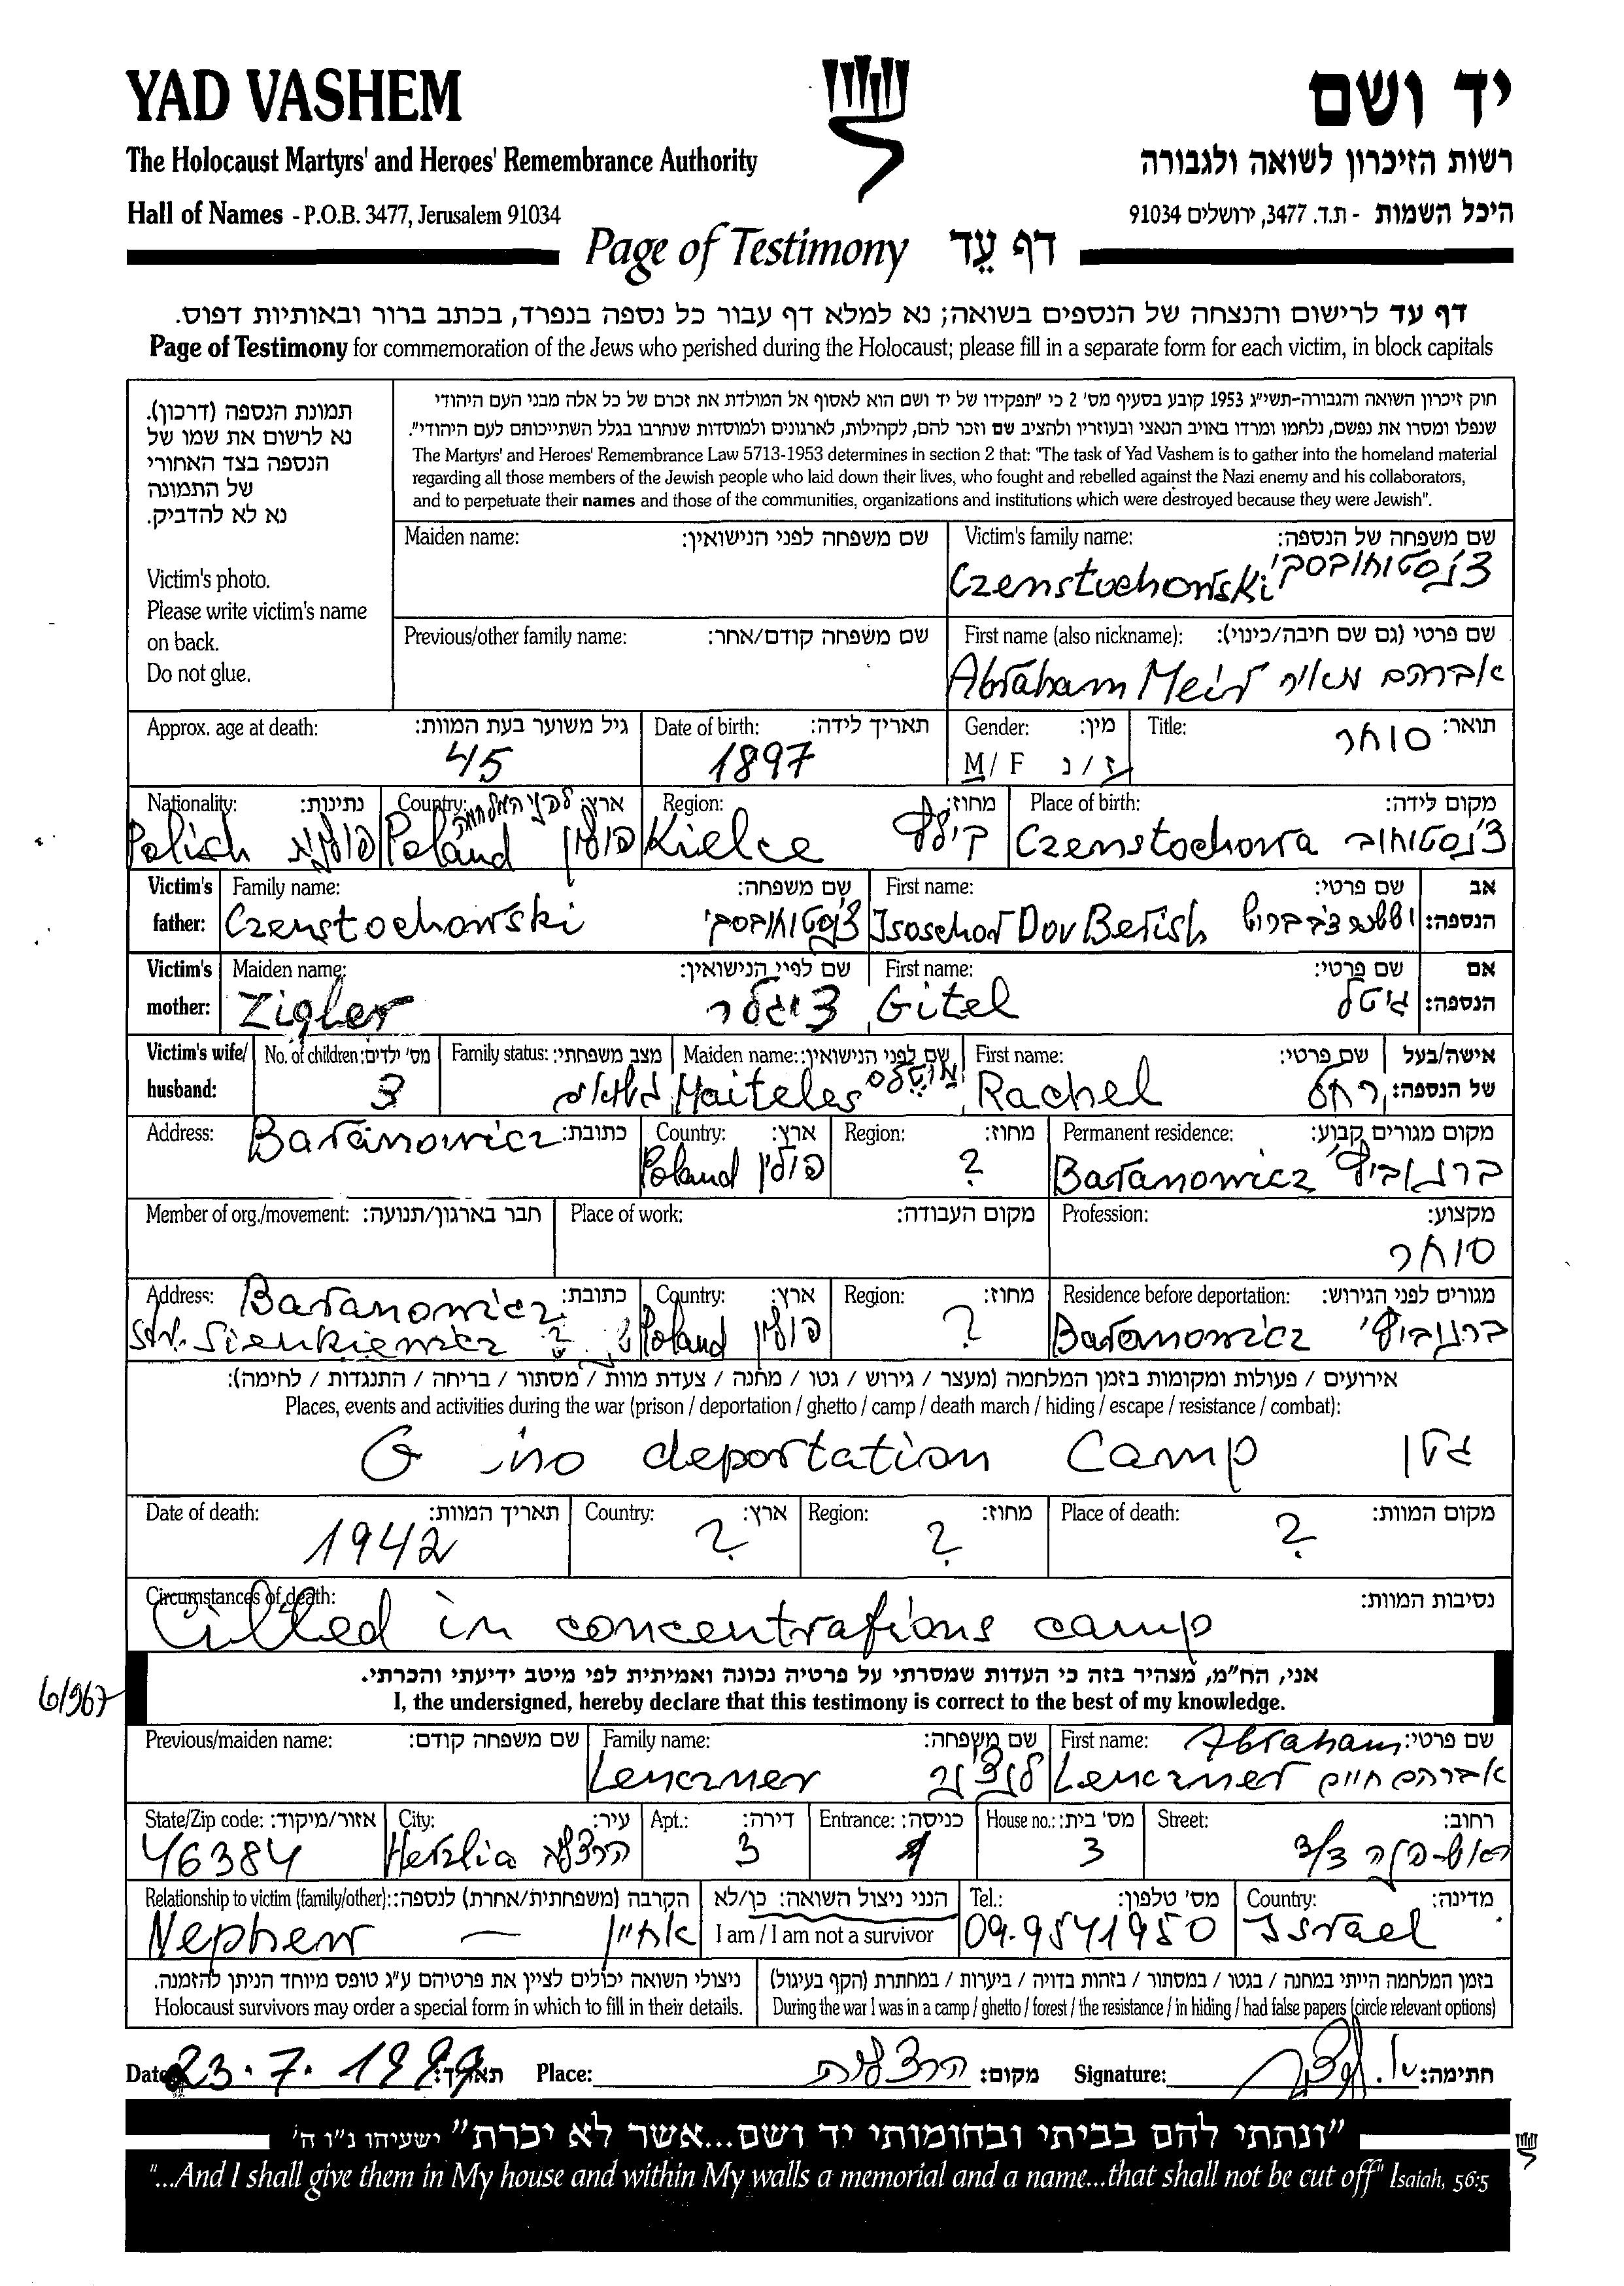 YAD VASHEM
יד ושם
The Holocaust Martyrs' and Heroes' Remembrance Authority
רשות הזיכרון לשואה ולגבורה
Hall of Names - P.O.B. 3477, Jerusalem 91034
היכל השמות - ת.ד. 3477, ירושלים 91034
Page of Testimony דף עֵד
דף עד לרישום והנצחה של הנספים בשואה; נא למלא דף עבור כל נספה בנפרד, בכתב ברור ובאותיות דפוס.
Page of Testimony for commemoration of the Jews who perished during the Holocaust; please fill in a separate form for each victim, in block capitals
תמונת הנספה (דרכון).
נא לרשום את שמו של
הנספה בצד האחורי
של התמונה
נא לא להדביק.
Victim's photo.
Please write victim's name
on back.
Do not glue.
חוק זיכרון השואה והגבורה-תשי"ג 1953 קובע בסעיף מס' 2 כי "תפקידו של יד ושם הוא לאסוף אל המולדת את זכרם של כל אלה מבני העם היהודי
שנפלו ומסרו את נפשם, נלחמו ומרדו באויב הנאצי ובעוזריו ולהציב שם וזכר להם, לקהילות, לארגונים ולמוסדות שנחרבו בגלל השתייכותם לעם היהודי".
The Martyrs' and Heroes' Remembrance Law 5713-1953 determines in section 2 that: "The task of Yad Vashem is to gather into the homeland material
regarding all those members of the Jewish people who laid down their lives, who fought and rebelled against the Nazi enemy and his collaborators,
and to perpetuate their names and those of the communities, organizations and institutions which were destroyed because they were Jewish".
Maiden name: שם משפחה לפני הנישואין:
Victim's family name: שם משפחה של הנספה:
Czenstochowski צ'נסטוחובסקי
Previous/other family name: שם משפחה קודם/אחר:
First name (also nickname): שם פרטי (גם שם חיבה/כינוי):
Abraham Meir אברהם מאיר
Approx. age at death: גיל משוער בעת המוות:
45
Date of birth: תאריך לידה:
1897
Gender: מין:
M / F ז / נ
Title: תואר:
סוחר
Nationality: נתינות:
Polish פולנא
Country: ארץ: לפני המלחמה
Poland פולין
Region: מחוז:
Kielce קילץ
Place of birth: מקום לידה:
Czenstochowa צ'נסטוחוב
Victim's father: אב הנספה:
Family name: שם משפחה:
Czenstochowski צ'נסטוחובסקי
First name: שם פרטי:
Isoschor Dov Berish
Victim's mother: אם הנספה:
Maiden name: שם לפני הנישואין:
Zigler ציגלר
First name: שם פרטי:
Gitel גיטל
Victim's wife/ husband: אישה/בעל של הנספה:
No. of children: מס' ילדים:
3
Family status: מצב משפחתי:
Maiden name: שם לפני הנישואין:
Maiteles
First name: שם פרטי:
Rachel רחל
Address: כתובת:
Baranowicz
Country: ארץ:
Poland פולין
Region: מחוז:
?
Permanent residence: מקום מגורים קבוע:
Baranowicz ברנוביץ'
Member of org./movement: חבר בארגון/תנועה:
Place of work: מקום העבודה:
Profession: מקצוע:
סוחר
Address: כתובת:
Baranowicz
Str. Sienkiewicz ?
Country: ארץ:
Poland פולין
Region: מחוז:
?
Residence before deportation: מגורים לפני הגירוש:
Baranowicz ברנוביץ'
אירועים / פעולות ומקומות בזמן המלחמה (מעצר / גירוש / גטו / מחנה / צעדת מוות / מסתור / בריחה / התנגדות / לחימה):
Places, events and activities during the war (prison / deportation / ghetto / camp / death march / hiding / escape / resistance / combat):
deportation Camp גטו
Date of death: תאריך המוות:
1942
Country: ארץ:
?
Region: מחוז:
?
Place of death: מקום המוות:
?
Circumstances of death: נסיבות המוות:
Cilled in concentrations camp
אני, הח"מ, מצהיר בזה כי העדות שמסרתי על פרטיה נכונה ואמיתית לפי מיטב ידיעתי והכרתי.
I, the undersigned, hereby declare that this testimony is correct to the best of my knowledge.
6/967
Previous/maiden name: שם משפחה קודם:
Family name: שם משפחה:
Lenczner לנצ'נר
First name: שם פרטי:
Abraham
Lenczner אברהם חיים
State/Zip code: אזור/מיקוד:
46384
City: עיר:
Herzlia הרצליה
Apt.: דירה:
3
Entrance: כניסה:
House no.: מס' בית:
3
Street: רחוב:
ראש-פינה 3/3
Relationship to victim (family/other): הקרבה (משפחתית/אחרת) לנספה:
Nephew — אחיין
הנני ניצול השואה: כן/לא
I am / I am not a survivor
Tel.: מס' טלפון:
09-9541950
Country: מדינה:
Israel
ניצולי השואה יכולים לציין את פרטיהם ע"ג טופס מיוחד הניתן להזמנה.
Holocaust survivors may order a special form in which to fill in their details.
בזמן המלחמה הייתי במחנה / בגטו / במסתור / בזהות בדויה / ביערות / במחתרת (הקף בעיגול)
During the war I was in a camp / ghetto / forest / the resistance / in hiding / had false papers (circle relevant options)
Date 23.7.1999 תאריך: Place: הרצליה מקום: Signature: חתימה:
"ונתתי להם בביתי ובחומותי יד ושם...אשר לא יכרת" ישעיהו נ"ו ה'
"...And I shall give them in My house and within My walls a memorial and a name...that shall not be cut off" Isaiah, 56:5